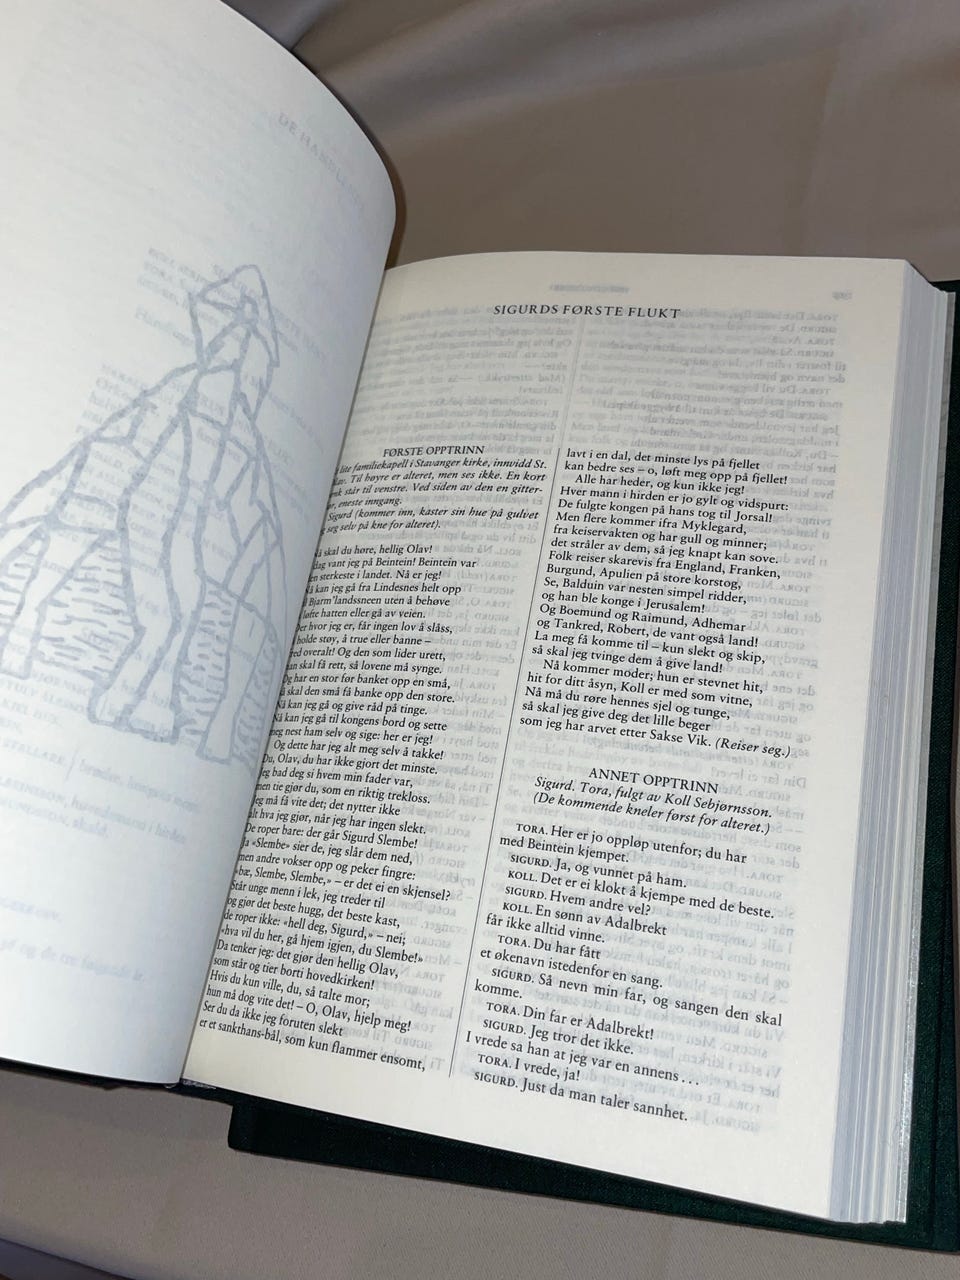 SIGURDS FØRSTE FLUKT
FØRSTE OPPTRINN
lite familiekapell i Stavanger kirke, innvidd St.
Til høyre er alteret, men ses ikke. En kort
står til venstre. Ved siden av den en gitter-
eneste inngang.
Sigurd (kommer inn, kaster sin hue på gulvet
seg selv på kne for alteret).
Nå skal du høre, hellig Olav!
dag vant jeg på Beintein! Beintein var
en sterkeste i landet. Nå er jeg!
Nå kan jeg gå fra Lindesnes helt opp
Bjarm'landssneen uten å behøve
løfte hatten eller gå av veien.
Der hvor jeg er, får ingen lov å slåss,
holde støy, å true eller banne –
overalt! Og den som lider urett,
han skal få rett, så lovene må synge.
Og har en stor før banket opp en små,
så skal den små få banke opp den store.
Nå kan jeg gå og give råd på tinge.
Nå kan jeg gå til kongens bord og sette
meg nest ham selv og sige: her er jeg!
Og dette har jeg alt meg selv å takke!
Du, Olav, du har ikke gjort det minste.
Jeg bad deg si hvem min fader var,
men tie gjør du, som en riktig trekloss.
Jeg må få vite det; det nytter ikke
alt hva jeg gjør, når jeg har ingen slekt.
De roper bare: der går Sigurd Slembe!
Ja «Slembe» sier de, jeg slår dem ned,
men andre vokser opp og peker fingre:
«bæ, Slembe, Slembe,» – er det ei en skjensel?
Står unge menn i lek, jeg treder til
og gjør det beste hugg, det beste kast,
de roper ikke: «hell deg, Sigurd,» – nei;
«hva vil du her, gå hjem igjen, du Slembe!»
Da tenker jeg: det gjør den hellig Olav,
som står og tier borti hovedkirken!
Hvis du kun ville, du, så talte mor;
hun må dog vite det! – O, Olav, hjelp meg!
Ser du da ikke jeg foruten slekt
er et sankthans-bål, som kun flammer ensomt,
lavt i en dal, det minste lys på fjellet
kan bedre ses – o, løft meg opp på fjellet!
Alle har heder, og kun ikke jeg!
Hver mann i hirden er jo gylt og vidspurt:
De fulgte kongen på hans tog til Jorsal!
Men flere kommer ifra Myklegard,
fra keiservakten og har gull og minner;
det stråler av dem, så jeg knapt kan sove.
Folk reiser skarevis fra England, Franken,
Burgund, Apulien på store korstog,
Se, Balduin var nesten simpel ridder,
og han ble konge i Jerusalem!
Og Boemund og Raimund, Adhemar
og Tankred, Robert, de vant også land!
La meg få komme til – kun slekt og skip,
så skal jeg tvinge dem å give land!
Nå kommer moder; hun er stevnet hit,
hit for ditt åsyn, Koll er med som vitne,
Nå må du røre hennes sjel og tunge,
så skal jeg give deg det lille beger
som jeg har arvet etter Sakse Vik. (Reiser seg.)
ANNET OPPTRINN
Sigurd. Tora, fulgt av Koll Sebjørnsson.
(De kommende kneler først for alteret.)
TORA. Her er jo oppløp utenfor; du har
med Beintein kjempet.
SIGURD. Ja, og vunnet på ham.
KOLL. Det er ei klokt å kjempe med de beste.
SIGURD. Hvem andre vel?
KOLL. En sønn av Adalbrekt
får ikke alltid vinne.
TORA. Du har fått
et økenavn istedenfor en sang.
SIGURD. Så nevn min far, og sangen den skal
komme.
TORA. Din far er Adalbrekt!
SIGURD. Jeg tror det ikke.
I vrede sa han at jeg var en annens . . .
TORA. I vrede, ja!
SIGURD. Just da man taler sannhet.